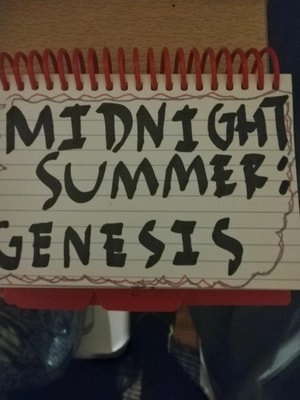 MIDNIGHT
SUMMER:
GENESIS